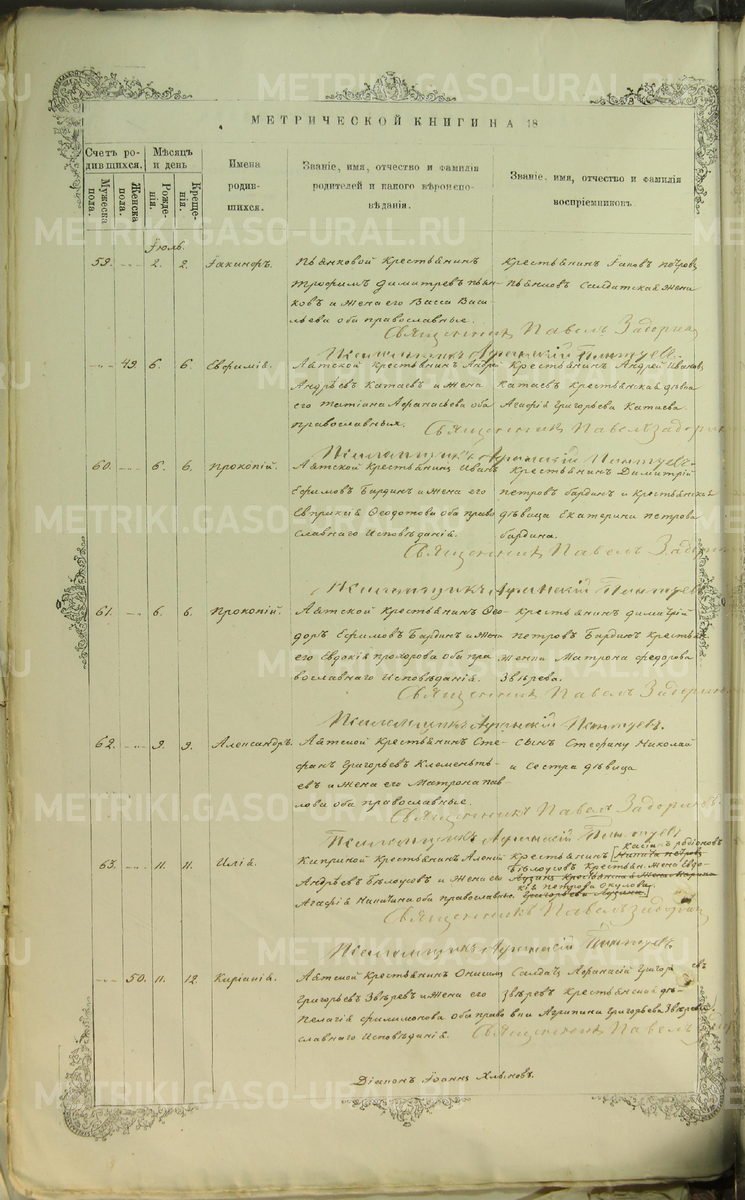 METRIKI.GASO-URAL.RU
МЕТРИЧЕСКОЙ КНИГИ НА 18
Счетъ родившихся.
Мужеска пола.
Женска пола.
Мѣсяцъ и день
Рожденія.
Крещенія.
Имена родившихся.
Званіе, имя, отчество и фамилія родителей и какого вѣроисповѣданія.
Званіе, имя, отчество и фамилія воспріемниковъ.
Іюль.
59. 2. 2. Іакинфъ.
Пьянковой Крестьянинъ
Трофимъ Димитревъ Пьян-
ковъ и жена его Васса Васи
льева оба православные.
Крестьянинъ Іаковъ Петровъ
Пьянковъ Солдатская жена
Священникъ Павелъ
49. 6. 6. Евфимія.
Аятской Крестьянинъ Андрей
Андреевъ Катаевъ и жена
его Татіана Афанасьева оба
православныя.
Крестьянинъ Андрей Ивановъ
Катаевъ Крестьянская дѣвка
Агафія Григорьева Катаева
Священникъ Павелъ
60. 6. 6. Прокопій.
Аятской Крестьянинъ Иванъ
Ефимовъ Бардинъ и жена его
Евпраксія Ѳеодотова оба право
славнаго Исповѣданія.
Крестьянинъ Димитрій
Петровъ Бардинъ и Крестьянская
дѣвица Екатерина Петрова
Бардина.
Священникъ Павелъ
61. 6. 6. Прокопій.
Аятской Крестьянинъ Ѳео-
доръ Ефимовъ Бардинъ и жена
его Евдокія Прохорова оба пра
вославнаго Исповѣданія.
Крестьянинъ Димитрій
Петровъ Бардинъ Крестья
жена Матрона Федорова
Звѣрева.
Священникъ Павелъ
62. 9. 9. Александръ.
Аятской Крестьянинъ Сте-
фанъ Григорьевъ Клементь-
евъ и жена его Матрона Пав
лова оба православные.
Сынъ Стефану Николай
и Сестра дѣвица
Священникъ Павелъ
63. 11. 11. Илія.
Киприной Крестьянинъ Алексій
Андреевъ Бѣлоусовъ и жена его
Агафія Никитина оба православные.
Крестьянинъ Касіанъ Родіоновъ
Бѣлоусовъ Крестьян. жена Евдо-
кія Петрова Окулова
Священникъ Павелъ
50. 11. 12. Киріакія.
Аятской Крестьянинъ Онисимъ
Григорьевъ Звѣревъ и жена его
Пелагія Филимонова оба право
славнаго Исповѣданія.
Солдатъ Афанасій Григорьевъ
Звѣревъ Крестьянская дѣ-
вка Агрипина Григорьева Звѣрева
Священникъ Павелъ
Діаконъ Іоаннъ Хлыновъ.